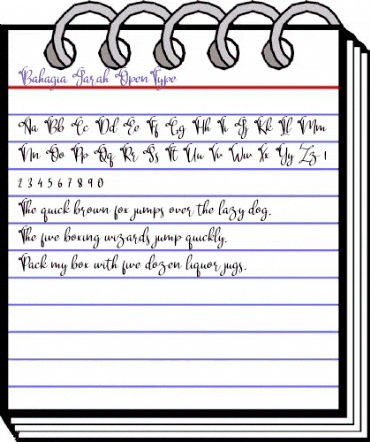 Bahagia Jarah OpenType
Aa Bb Cc Dd Ee Ff Gg Hh Ii Jj Kk Ll Mm
Nn Oo Pp Qq Rr Ss Tt Uu Vv Ww Xx Yy Zz 1
2 3 4 5 6 7 8 9 0
The quick brown fox jumps over the lazy dog.
The five boxing wizards jump quickly.
Pack my box with five dozen liquor jugs.